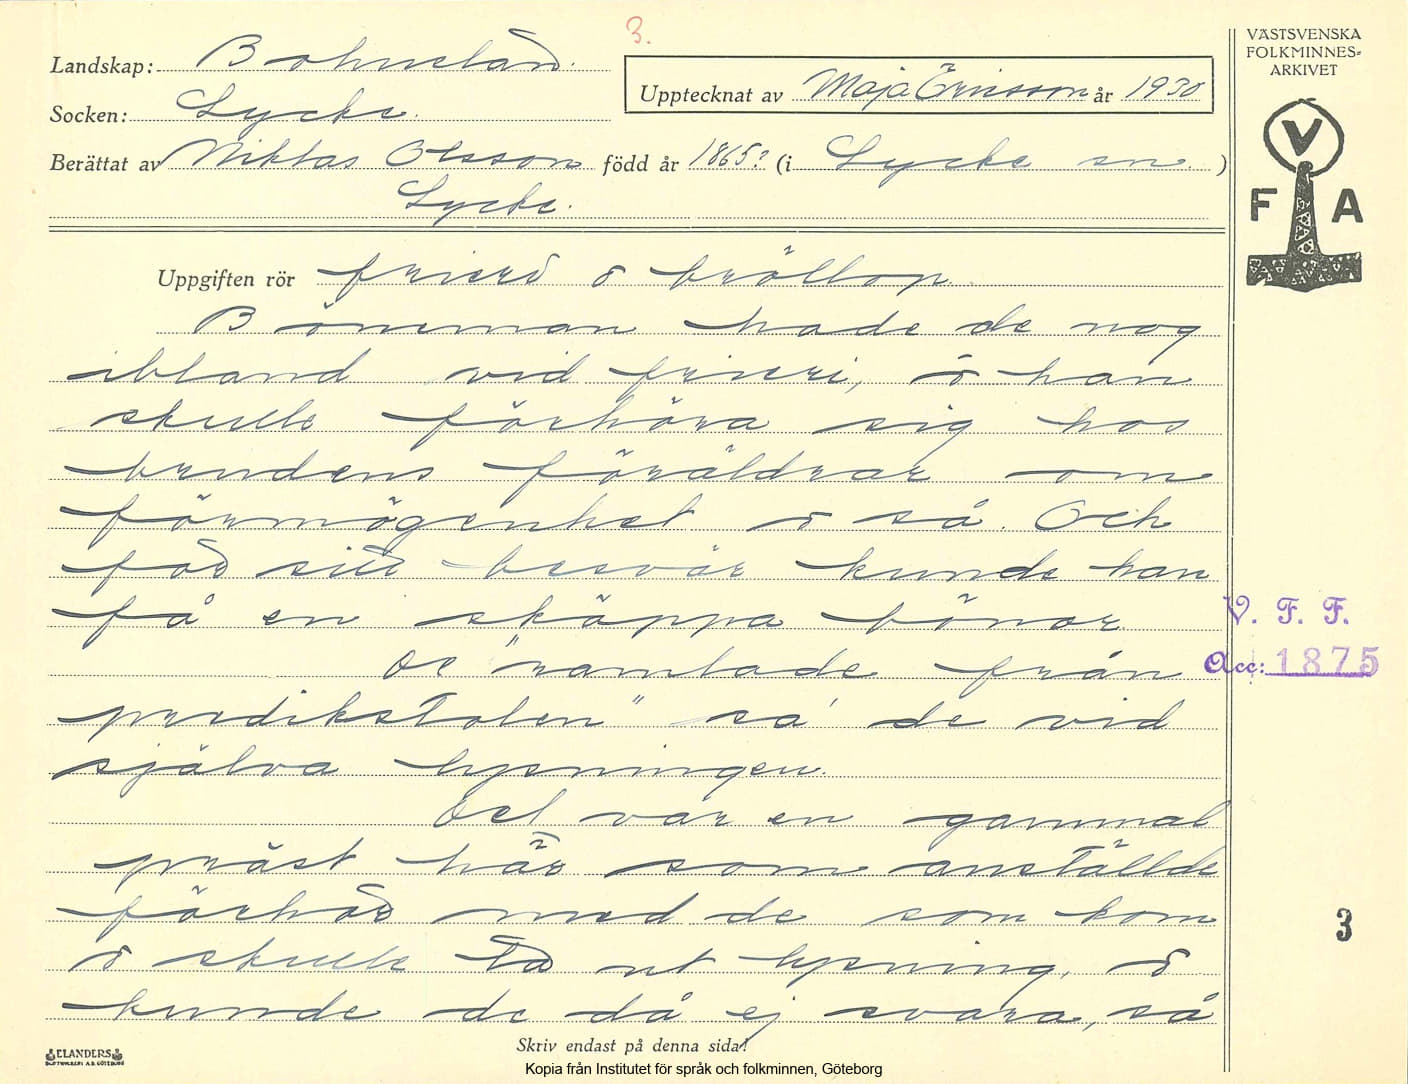 3.
VÄSTSVENSKA
FOLKMINNES-
ARKIVET
Landskap: Bohuslän.
Upptecknat av Maja Ericsson år 1930
Socken: Lycke.
Berättat av Niklas Olsson född år 1865? (i Lycke sn. )
Lycke.
V
F A
Uppgiften rör frieri o bröllop.
Böneman hade de nog
ibland vid frieri, o han
skulle förhöra sig hos
brudens föräldrar om
förmögenhet o så. Och
för sitt besvär kunde han
få en skäppa bönor.
De "ramlade från
predikstolen" sa' de vid
själva lysningen.
Det var en gammal
präst här som anställde
förhör med de som kom
o skulle ta ut lysning, o
kunde de då ej svara, så
V. F. F.
Acc: 1875
3
Skriv endast på denna sida!
ELANDERS
BOKTRYCKERI A.B. GÖTEBORG
Kopia från Institutet för språk och folkminnen, Göteborg